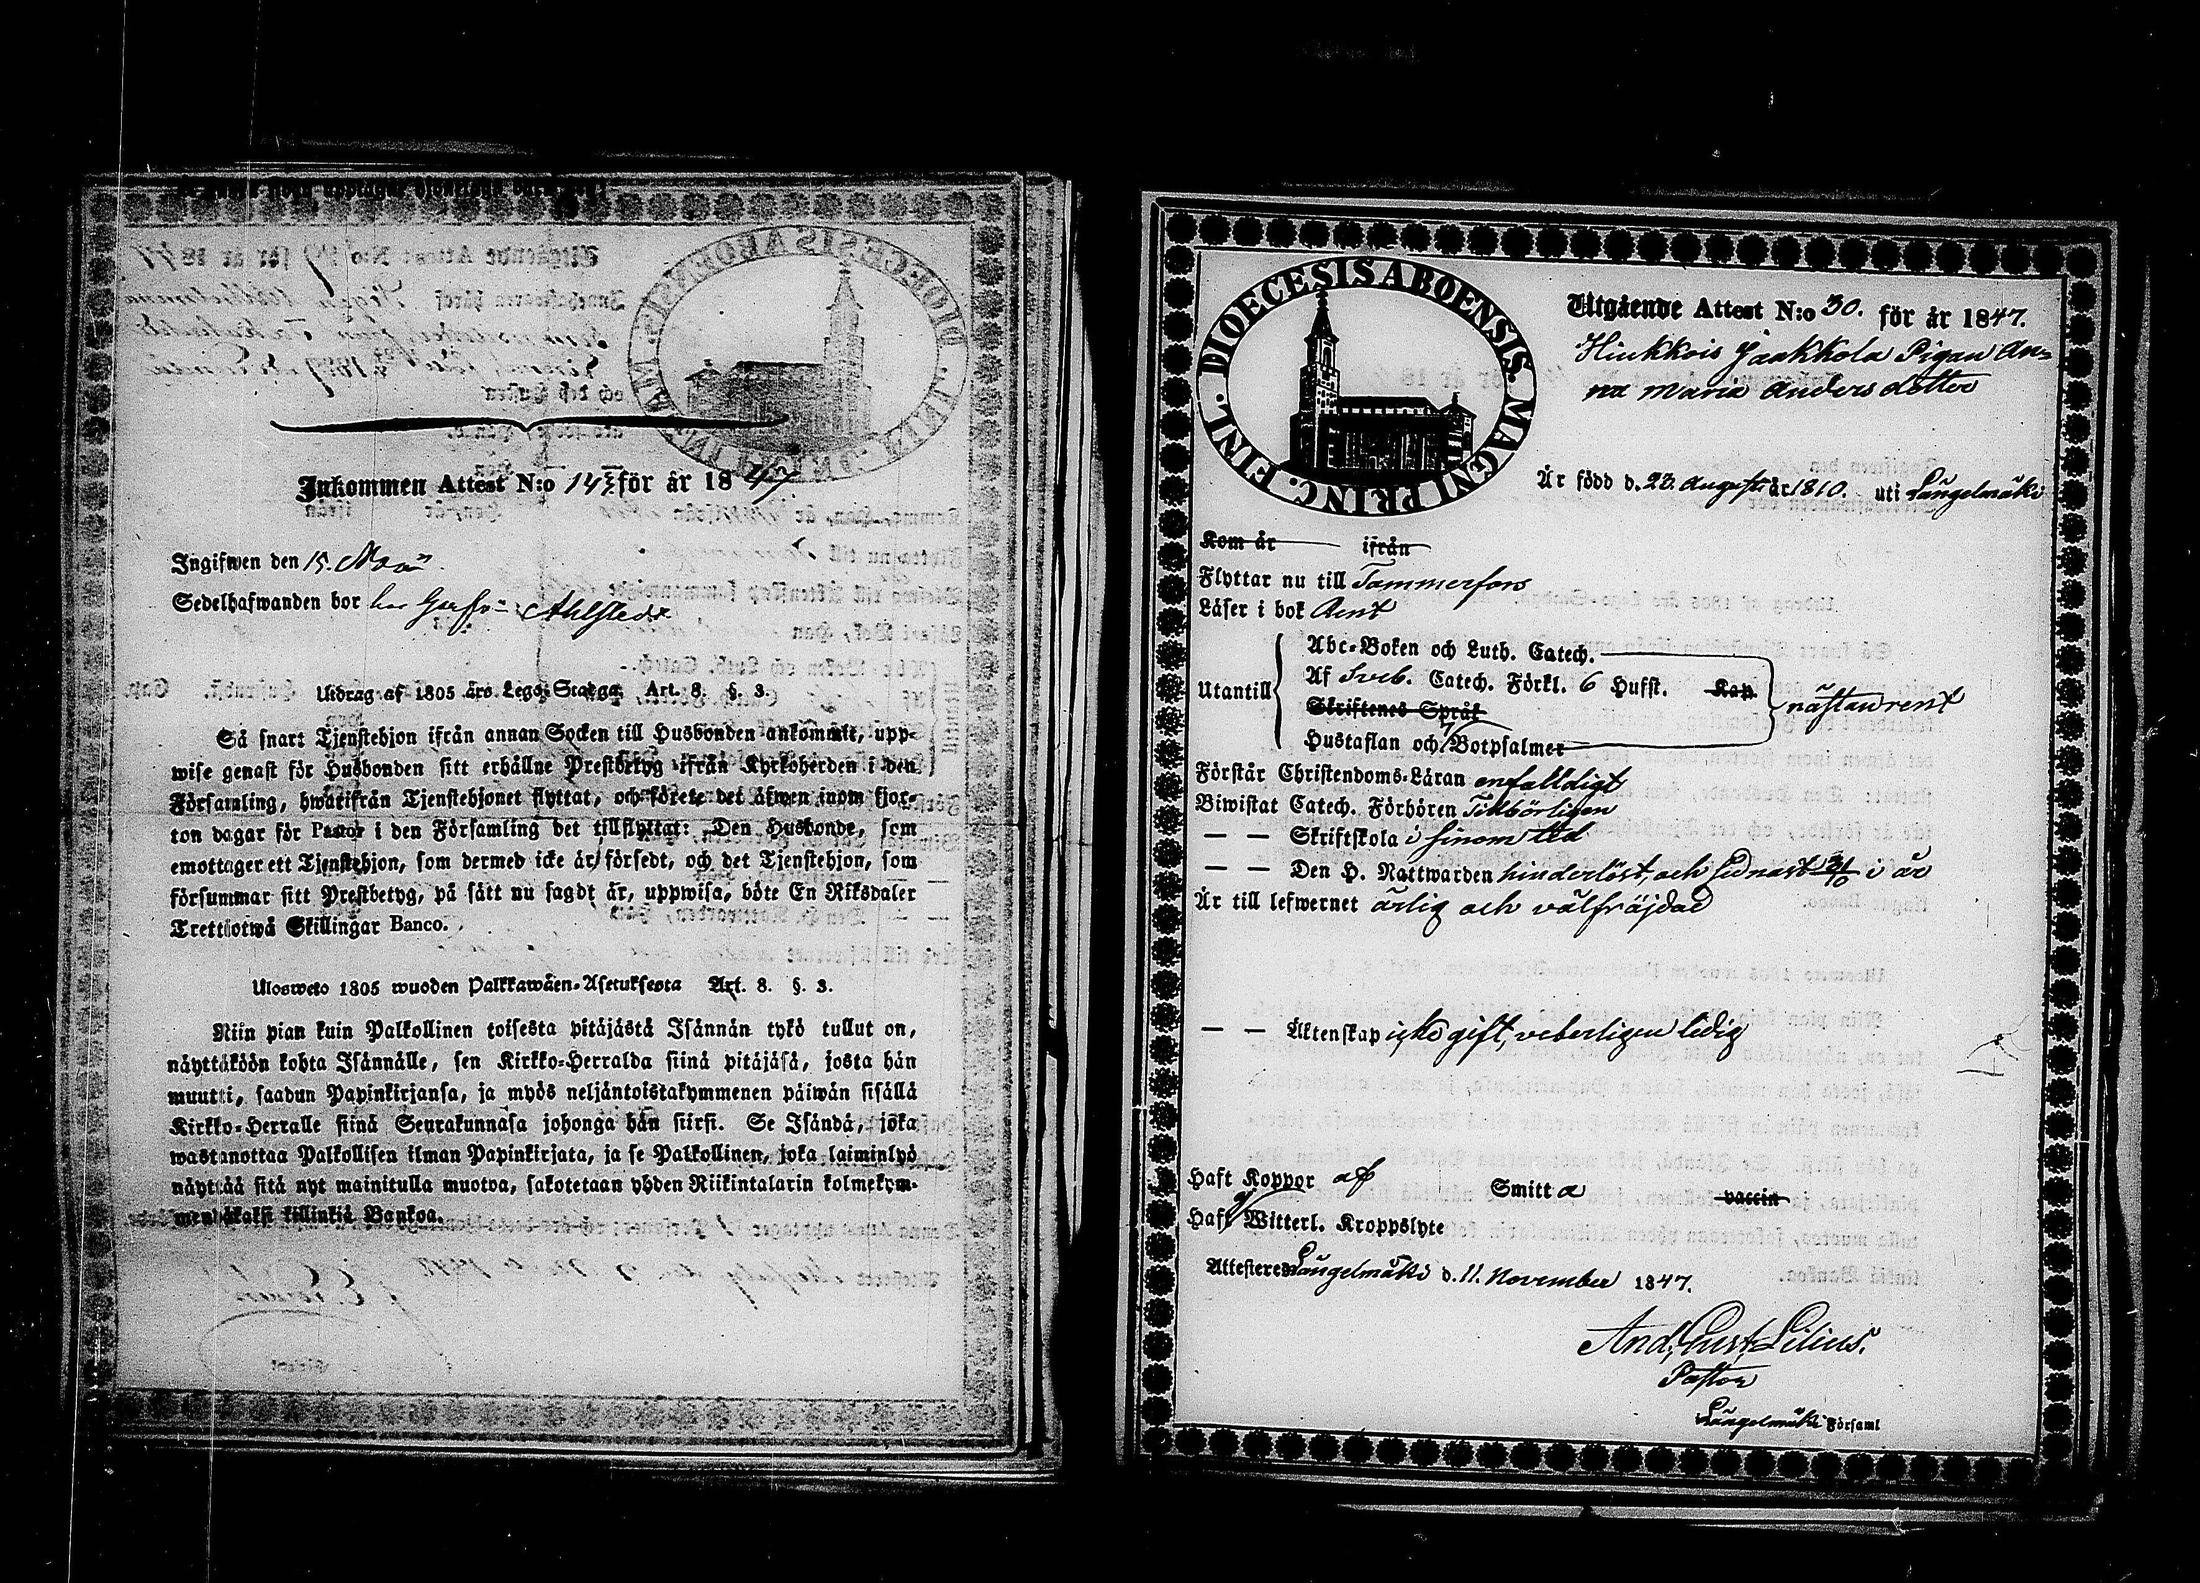 Inkommen Attest N:o 143 för år 1847
Ingifwen den 15. Maii
Sedelhafwanden bor hos Ahlstedt
Utdrag af 1805 års Lego-Stadga. Art. 8. §. 3.
Så snart Tjenstehjon ifrån annan Socken till Husbonden ankommit, upp-
wise genast för Husbonden sitt erhållne Prestbetyg ifrån Kyrkoherden i den
Församling, hwatifrån Tjenstehjonet flyttat, och förete det äfwen inom fjor-
ton dagar för Pastor i den Församling det tillflyttat: Den Husbonde, som
emottager ett Tjenstehjon, som dermed icke är försedt, och det Tjenstehjon, som
försummar sitt Prestbetyg, på sätt nu sagdt är, uppwisa, böte En Riksdaler
Trettiotwå Skillingar Banco.
Ulosweto 1805 wuoden Palkkawäen-Asetuksesta Art. 8. §. 3.
Niin pian kuin Palkollinen toisesta pitäjästä Isännän tykö tullut on,
näyttäköön kohta Isännälle, sen Kirkko-Herralda siinä pitäjäsä, josta hän
muutti, saadun Papinkirjansa, ja myös neljäntoistakymmenen päiwän sisällä
Kirkko-Herralle siinä Seurakunnasa johonga hän siirsi. Se Isändä, joka
wastanottaa Palkollisen ilman Papinkirjata, ja se Palkollinen, joka laiminlyö
näyttää sitä nyt mainitulla muotoa, sakotetaan yhden Riikintalarin kolmekym-
mendäkaksi killinkiä Bankoa.
DIOECESIS ABOENSIS. MAGNI PRINC. FINL.
Utgående Attest N:o 30. för år 1847.
Hiukkois Jaakkola Pigan An=
na Maria Andersdotter
Är född d. 22. Augusti år 1810. uti Längelmäki
Kom år ifrån
Flyttar nu till Tammerfors
Läser i bok Rent
Utantill
Abc-Boken och Luth. Catech.
Af Sveb. Catech. Förkl. 6 Hufst. Kap
Skriftenes Språk
Hustaflan och 7 Botpsalmer
nästan rent
Förstår Christendoms-Läran enfalldigt
Biwistat Catech. Förhören Tillbörligen
— — Skriftskola i sinom tid
— — Den H. Nattwarden hinderlöst, och sednast 31/10 i år
Är till lefwernet ärlig och välfräjdad
— — Äktenskap icke gift, veterligen ledig
Haft Koppor af Smitta vaccin
Haft ej Witterl. Kroppslyte
Attesteres Längelmäki d. 11. November 1847.
And. Gust. Lilius.
Pastor
Längelmäki Församl